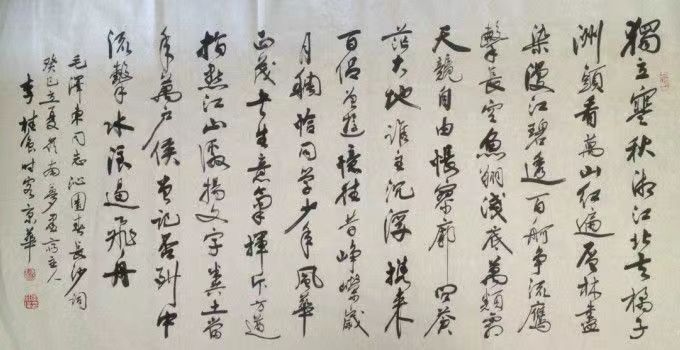 獨立寒秋湘江北去橘子
洲頭看萬山紅遍層林盡
染漫江碧透百舸爭流鷹
擊長空魚翔淺底萬類霜
天競自由悵寥廓問蒼
茫大地誰主沉浮携來
百侣曾遊憶往昔崢嶸歲
月稠恰同學少年風華
正茂书生意氣揮斥方遒
指點江山激揚文字糞土當
年萬户侯曾記否到中
流擊水浪遏飛舟
毛澤東同志沁園春長沙詞
癸巳立夏於南主人
李桂时客京華